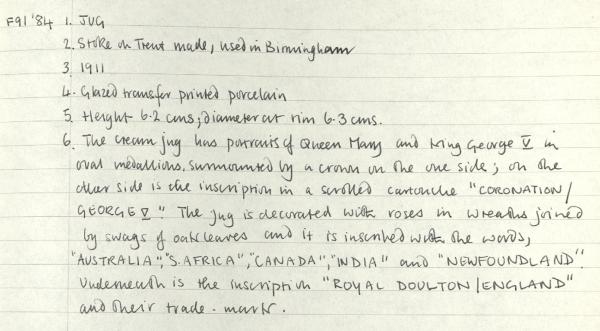 F91 '84 1. JUG
2. Stoke on Trent made, used in Birmingham
3. 1911
4. Glazed transfer printed porcelain
5. Height 6.2 cms; diameter at rim 6.3 cms.
6. The cream jug has portraits of Queen Mary and King George V in
oval medallions, surmounted by a crown on the one side; on the
other side is the inscription in a scrolled cartouche "CORONATION/
GEORGE V". The jug is decorated with roses in wreaths joined
by swags of oak leaves and it is inscribed with the words,
"AUSTRALIA", "S. AFRICA", "CANADA", "INDIA" and "NEWFOUNDLAND".
Underneath is the inscription "ROYAL DOULTON/ENGLAND"
and their trade-mark.